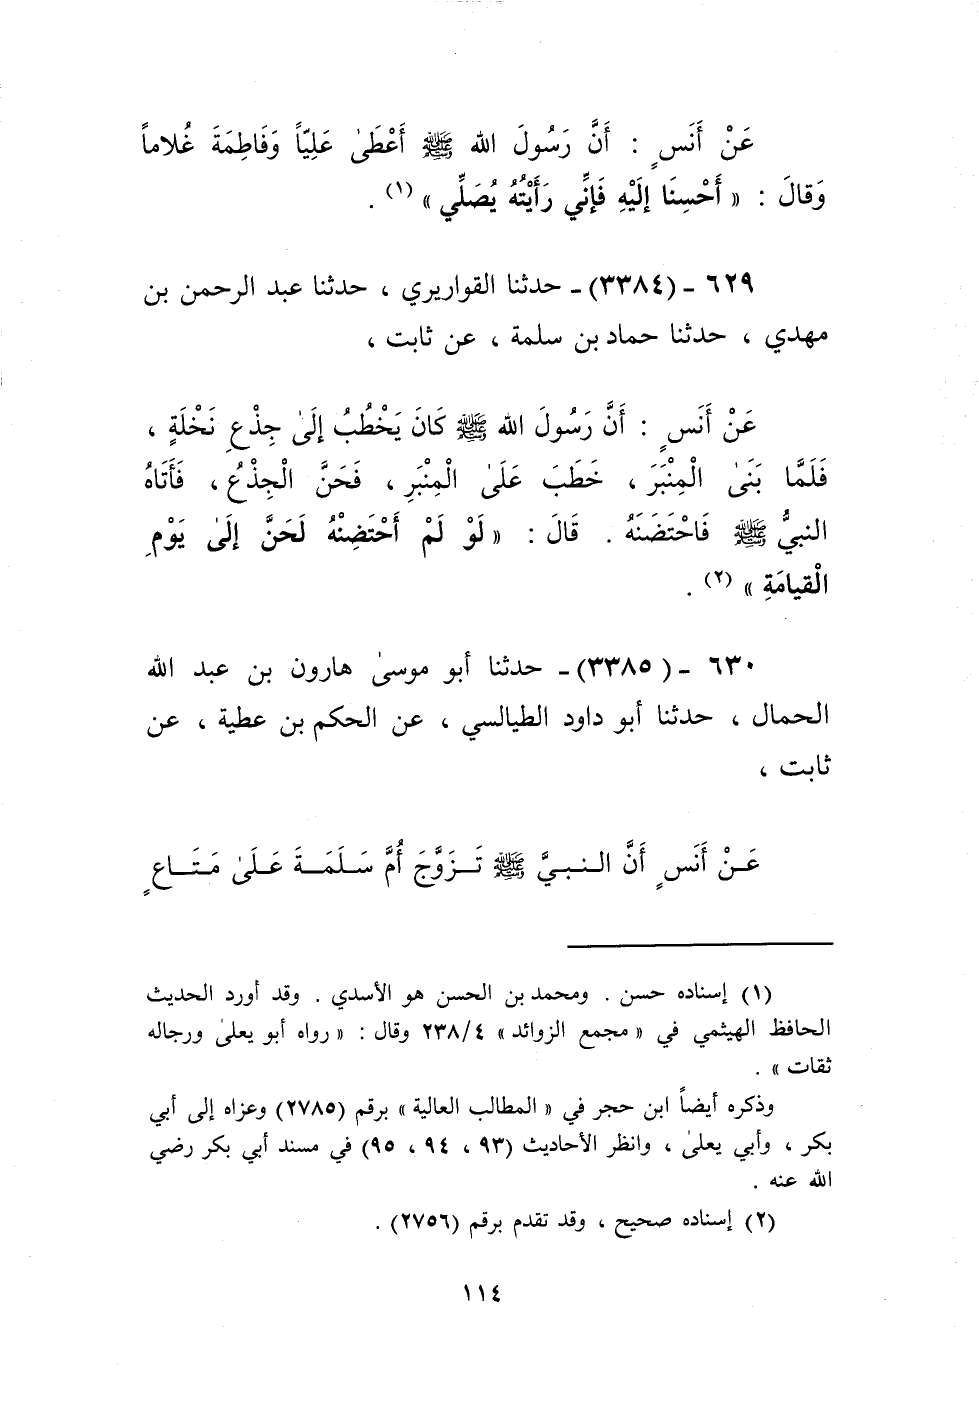 عَنْ أَنَسٍ : أَنَّ رَسُولَ الله ﷺ أَعْطَىٰ عَلِيّاً وَفَاطِمَةَ غُلاماً
وَقالَ : « أَحْسِنَا إلَيْهِ فَإنِّي رَأَيْتُهُ يُصَلِّي » (١) .
٦٢٩ - (٣٣٨٤) - حدثنا القواريري ، حدثنا عبد الرحمن بن
مهدي ، حدثنا حماد بن سلمة ، عن ثابت ،
عَنْ أَنَسٍ : أَنَّ رَسُولَ الله ﷺ كَانَ يَخْطُبُ إلَىٰ جِذْعِ نَخْلَةٍ ،
فَلَمَّا بَنَىٰ الْمِنْبَرَ ، خَطَبَ عَلَىٰ الْمِنْبَرِ ، فَحَنَّ الْجِذْعُ ، فَأَتَاهُ
النبيُّ ﷺ فَاحْتَضَنَهُ . قَالَ : « لَوْ لَمْ أَحْتَضِنْهُ لَحَنَّ إلَىٰ يَوْمِ
الْقيامَةِ » (٢) .
٦٣٠ - ( ٣٣٨٥) - حدثنا أبو موسىٰ هارون بن عبد الله
الحمال ، حدثنا أبو داود الطيالسي ، عن الحكم بن عطية ، عن
ثابت ،
عَنْ أَنَسٍ أَنَّ النبيَّ ﷺ تَزَوَّجَ أُمَّ سَلَمَةَ عَلَىٰ مَتَاعٍ
(١) إسناده حسن . ومحمد بن الحسن هو الأسدي . وقد أورد الحديث
الحافظ الهيثمي في « مجمع الزوائد » ٢٣٨/٤ وقال : « رواه أبو يعلىٰ ورجاله
ثقات » .
وذكره أيضاً ابن حجر في « المطالب العالية » برقم (٢٧٨٥) وعزاه إلى أبي
بكر ، وأبي يعلىٰ ، وانظر الأحاديث (٩٣ ، ٩٤ ، ٩٥) في مسند أبي بكر رضي
الله عنه .
(٢) إسناده صحيح ، وقد تقدم برقم (٢٧٥٦) .
١١٤